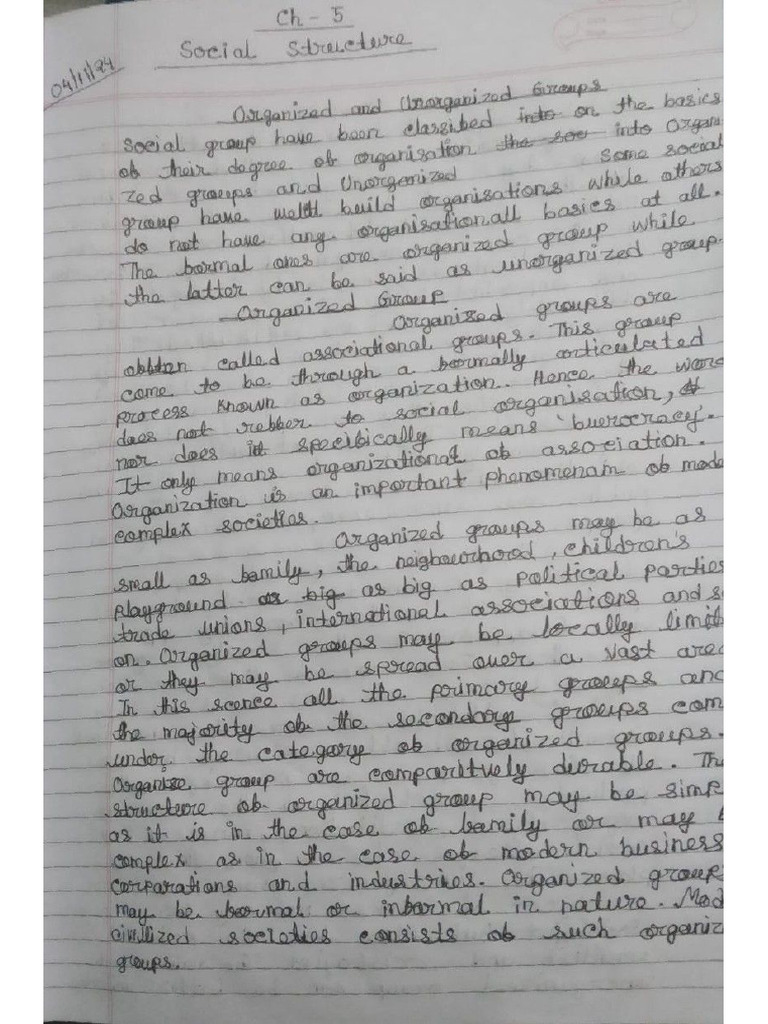 Ch - 5
Social Structure
04/11/24
Organized and Unorganized Groups
Social group have been classified into on the basics
of their degree of organisation the soc into Organi
zed groups and Unorgenized Some social
group have well build organisations while others
do not have any organisationall basics at all.
The formal ones are organized group while
the latter can be said as unorganized group.
Organized Group
Organized groups are
often called associational groups. This group
come to be through a formally articulated
process known as organization. Hence the word
does not reffer to social organisation,
nor does it specifically means 'buerocracy'.
It only means organizational of association.
Organization is an important phenomenam of mode
complex societies.
Organized groups may be as
small as family, the neigbourhood, children's
playground as big as big as political parties
trade unions, international associations and s
on. Organized groups may be locally limit
or they may be spread over a vast area
In this scence all the primary groups and
the majority of the secondory groups com
under the category of organized groups.
Organize group are comparitvely durable. The
structure of organized group may be simp
as it is in the case of family or may b
complex as in the case of modern business
corparations and industries. Organized group
may be formal or informal in nature. Mod
civilized societies consists of such organiz
groups.